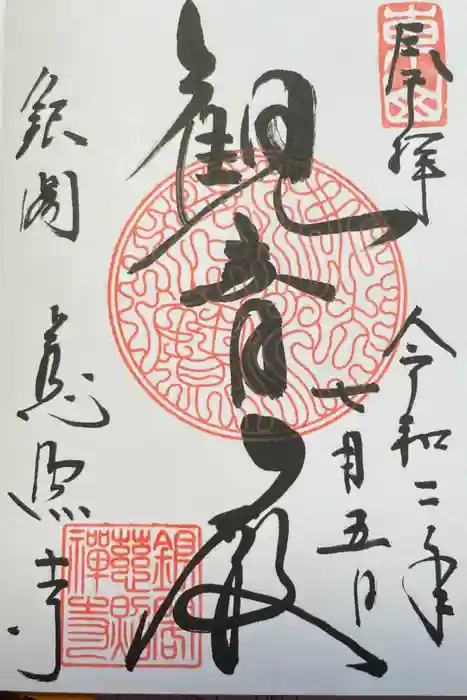 奉拝
令和二年
七月五日
観音殿
銀閣 慈照寺
銀閣慈照禅寺